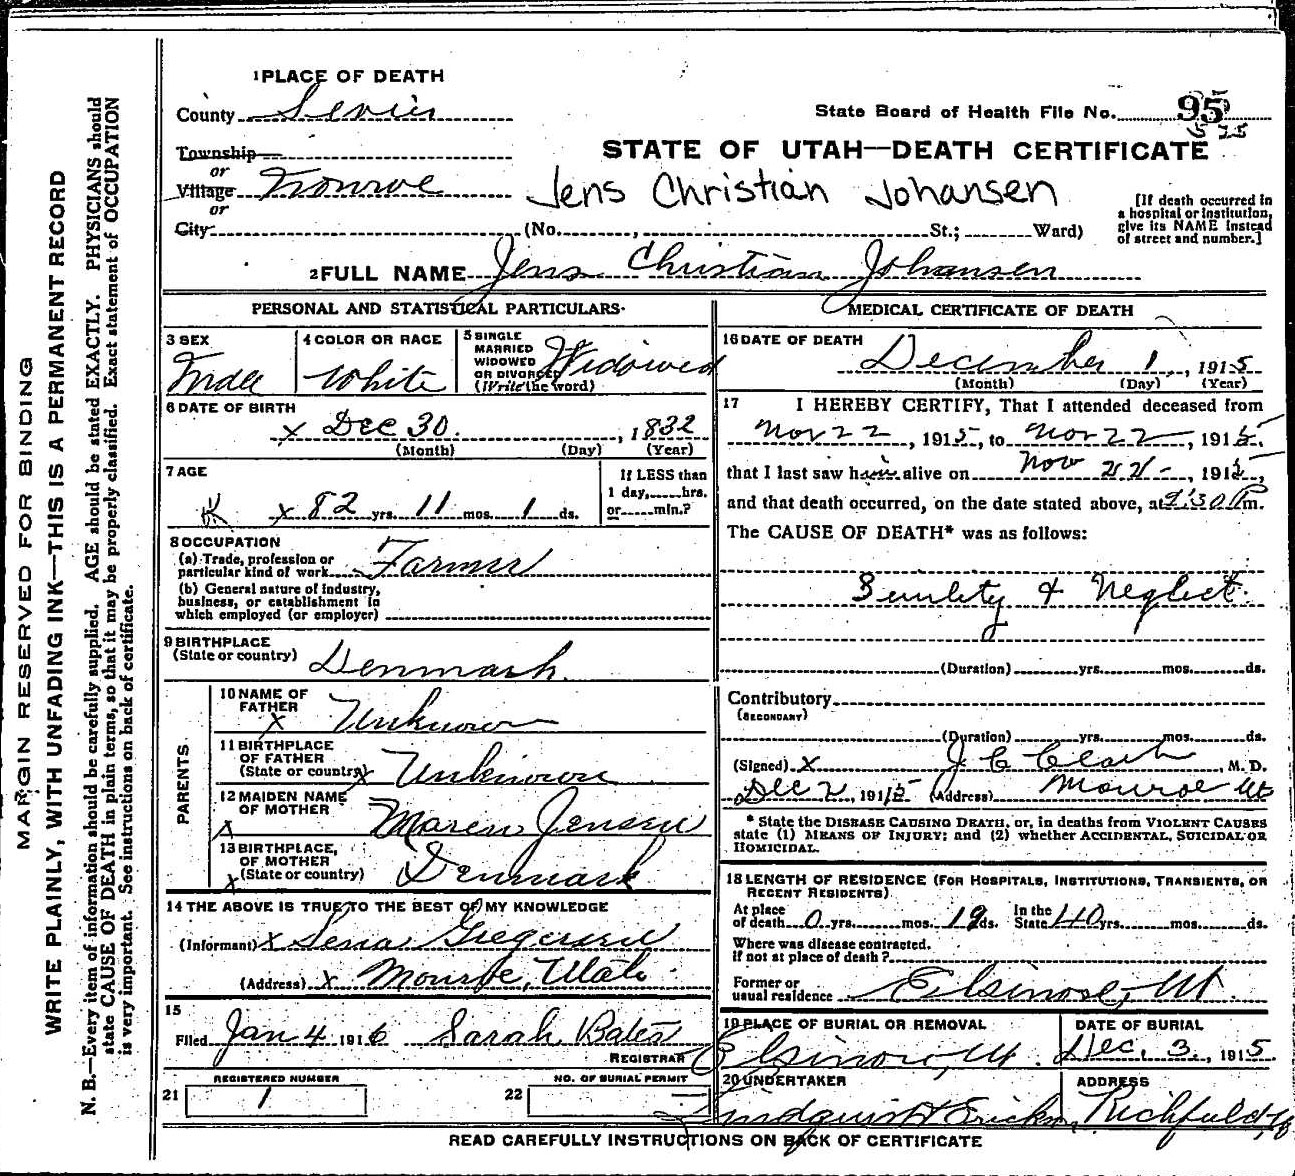 1 PLACE OF DEATH
County Sevier
State Board of Health File No. 95
575
Township
or
Village Monroe
or
City (No. , St.; Ward)
STATE OF UTAH—DEATH CERTIFICATE
Jens Christian Johansen
[If death occurred in
a hospital or institution,
give its NAME instead
of street and number.]
2 FULL NAME Jens Christian Johansen
PERSONAL AND STATISTICAL PARTICULARS
3 SEX
Male
4 COLOR OR RACE
White
5 SINGLE
MARRIED
WIDOWED
OR DIVORCED
(Write the word)
Widowed
6 DATE OF BIRTH
x Dec 30. , 1832
(Month) (Day) (Year)
7 AGE
x 82 yrs. 11 mos. 1 ds.
If LESS than
1 day, hrs.
or min.?
8 OCCUPATION
(a) Trade, profession or
particular kind of work Farmer
(b) General nature of industry,
business, or establishment in
which employed (or employer)
9 BIRTHPLACE
(State or country) Denmark.
PARENTS
10 NAME OF
FATHER
x Unknown
11 BIRTHPLACE
OF FATHER
(State or country) x Unknown
12 MAIDEN NAME
OF MOTHER
x Maren Jensen
13 BIRTHPLACE,
OF MOTHER
(State or country)
x Denmark
14 THE ABOVE IS TRUE TO THE BEST OF MY KNOWLEDGE
(Informant) x Lena Gregersen
(Address) x Monroe, Utah.
15
Filed Jan 4 1916 Sarah Bates
REGISTRAR
REGISTERED NUMBER
21 1
NO. OF BURIAL PERMIT
22
MEDICAL CERTIFICATE OF DEATH
16 DATE OF DEATH
December 1, , 1915
(Month) (Day) (Year)
17 I HEREBY CERTIFY, That I attended deceased from
Nov 22 , 1915, to Nov 22 , 1915.
that I last saw him alive on Nov 22 , 1915,
and that death occurred, on the date stated above, at 9:30 P m.
The CAUSE OF DEATH* was as follows:
Senility & Neglect.
(Duration) yrs. mos. ds.
Contributory
(SECONDARY)
(Duration) yrs. mos. ds.
(Signed) x J C Clark M. D.
Dec 2, 1915 (Address) Monroe Ut
* State the DISEASE CAUSING DEATH, or, in deaths from VIOLENT CAUSES
state (1) MEANS OF INJURY; and (2) whether ACCIDENTAL, SUICIDAL OR
HOMICIDAL.
18 LENGTH OF RESIDENCE (FOR HOSPITALS, INSTITUTIONS, TRANSIENTS, OR
RECENT RESIDENTS)
At place
of death 0 yrs. mos. 19 ds. In the
State 40 yrs. mos. ds.
Where was disease contracted.
if not at place of death?
Former or
usual residence Elsinore, Ut.
19 PLACE OF BURIAL OR REMOVAL
Elsinore, Ut.
DATE OF BURIAL
Dec. 3. , 1915.
20 UNDERTAKER
Lindquist
ADDRESS
Richfield, Ut
READ CAREFULLY INSTRUCTIONS ON BACK OF CERTIFICATE
MARGIN RESERVED FOR BINDING
WRITE PLAINLY, WITH UNFADING INK—THIS IS A PERMANENT RECORD
N. B.—Every item of information should be carefully supplied. AGE should be stated EXACTLY. PHYSICIANS should
state CAUSE OF DEATH in plain terms, so that it may be properly classified. Exact statement of OCCUPATION
is very important. See instructions on back of certificate.